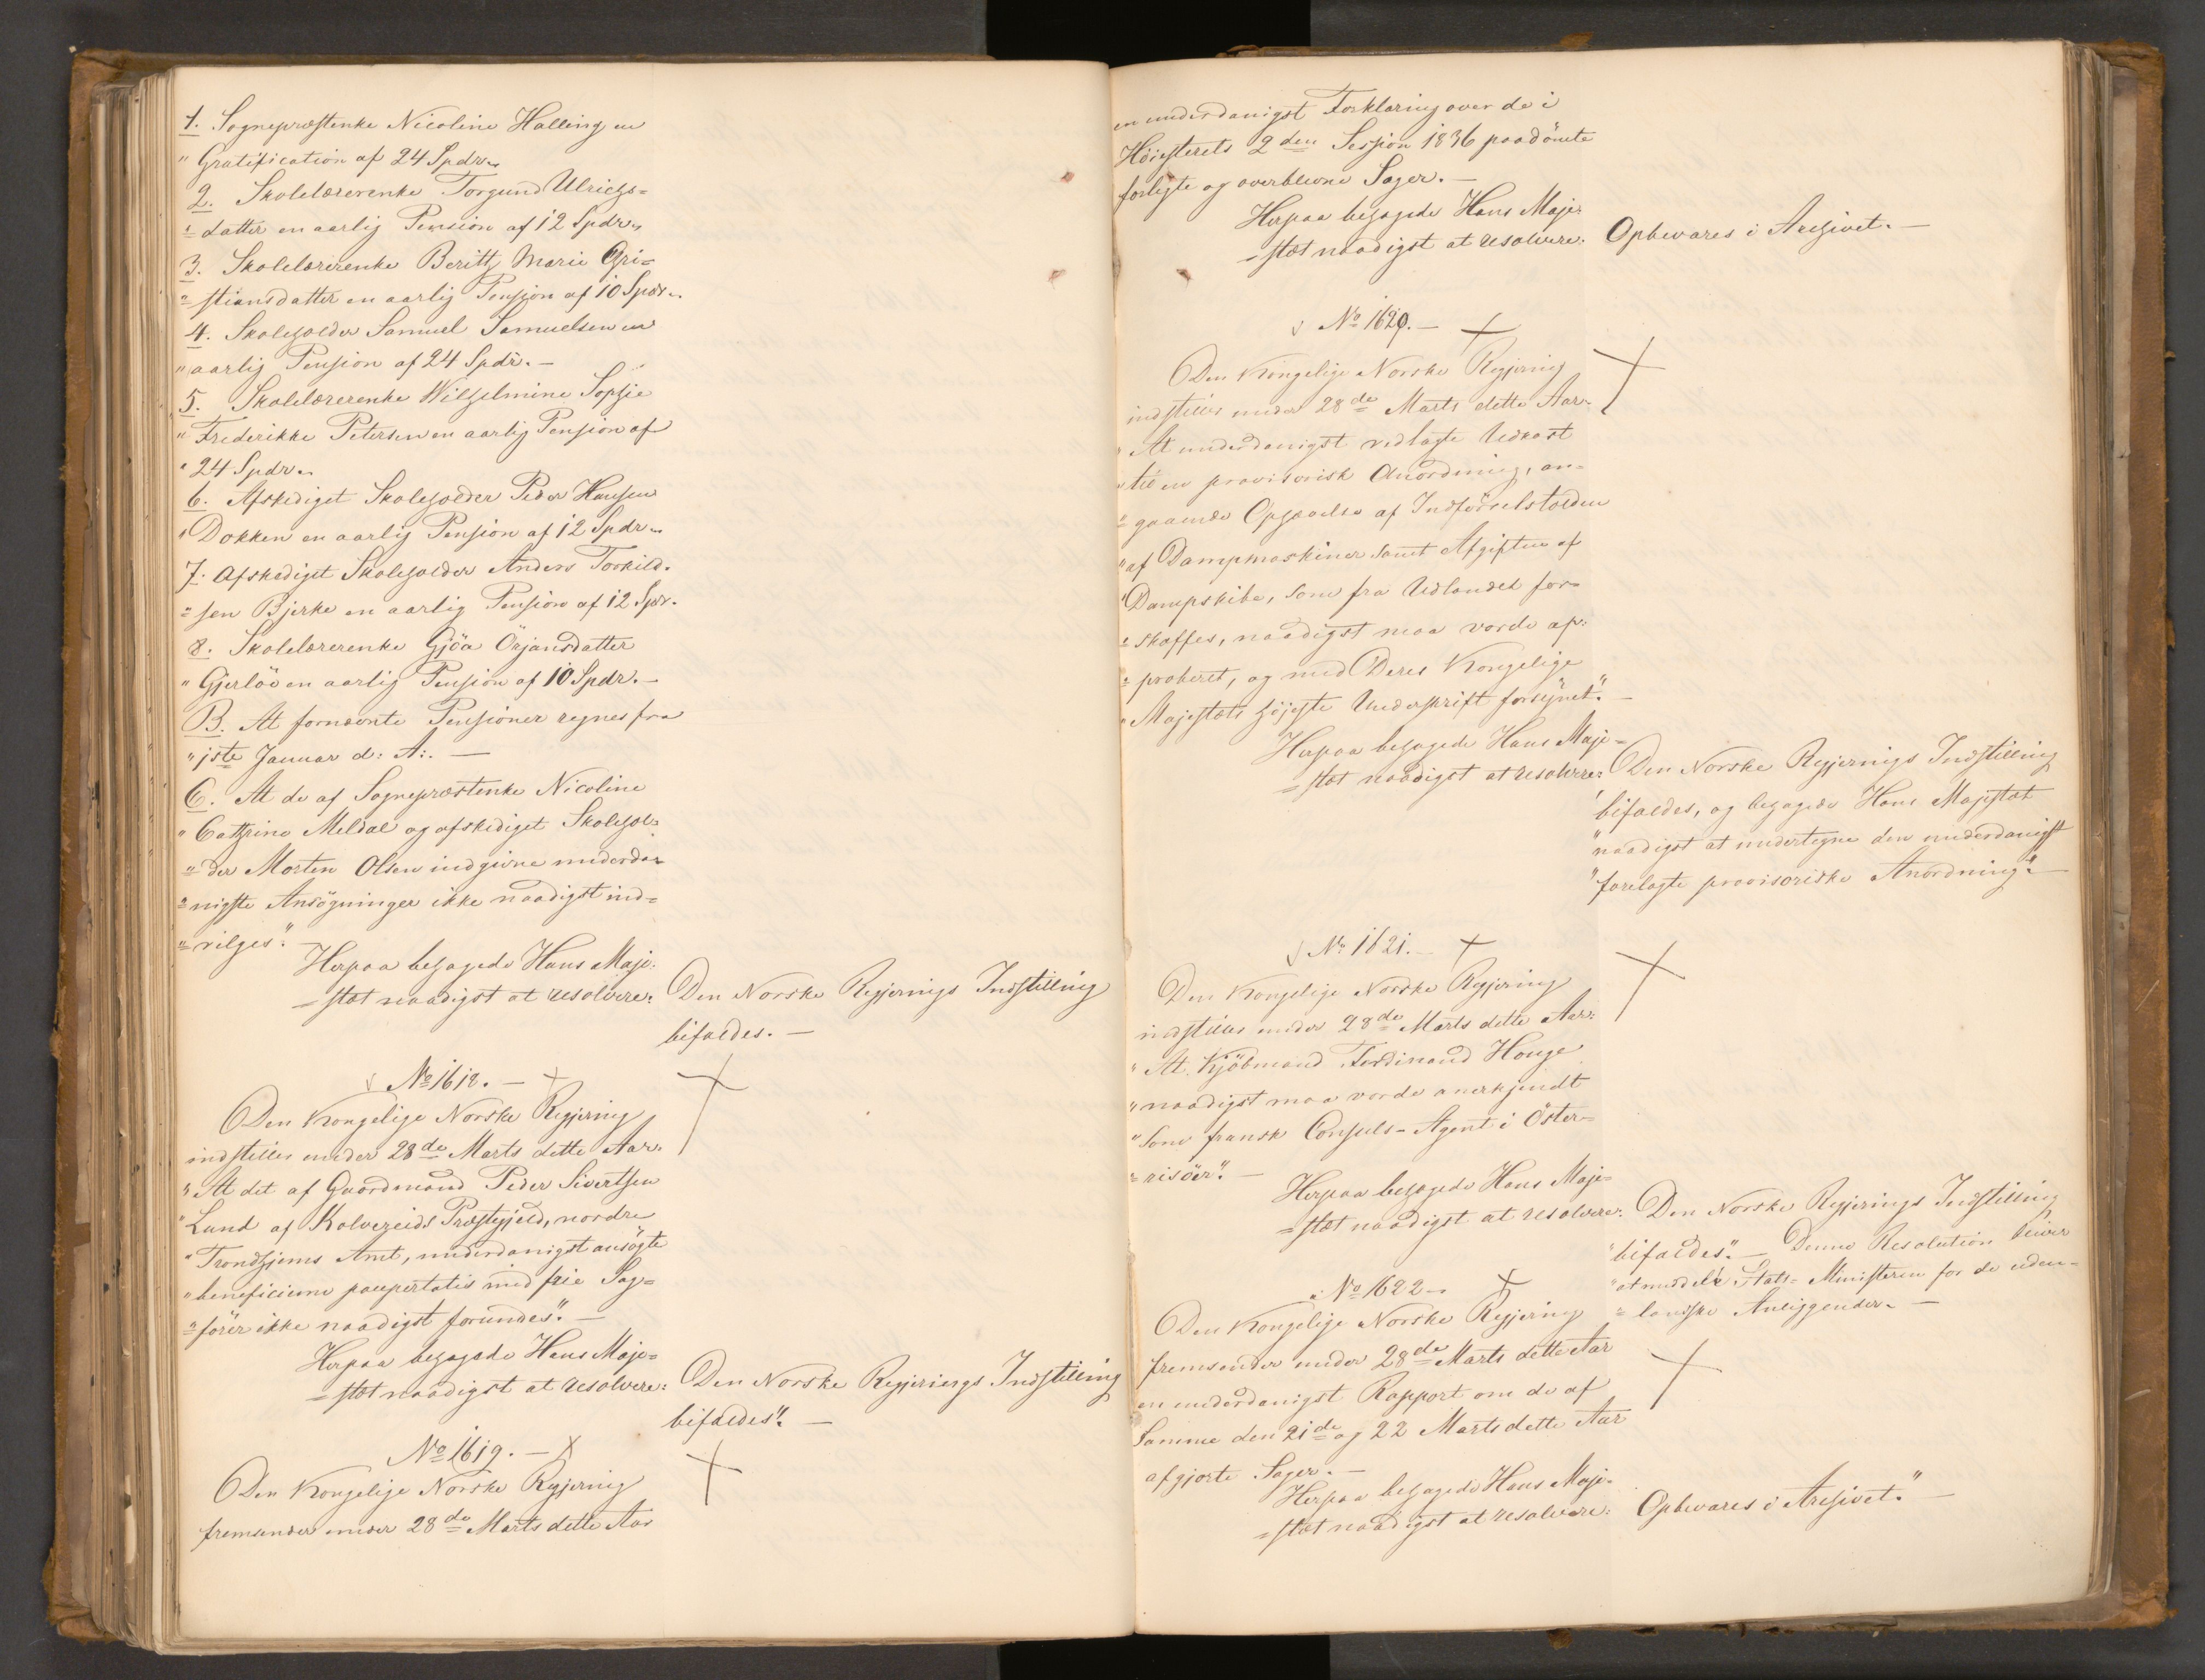 1. Sognepræstenke Nicoline Halling en
" Gratification af 24 Spdr.
2. Skolelærerenke Torgund Ulrichs=
= datter en aarlig Pension af 12 Spdr.
3. Skolelærerenke Berith Marie Chri=
= stiansdatter en aarlig Pension af 10 Spdr.
4. Skoleholder Samuel Samuelsen en
" aarlig Pension af 24 Spdr. —
5. Skolelærerenke Wilhelmine Sophie
" Frederikke Petersen en aarlig Pension af
" 24 Spdr.
6. Afskediget Skoleholder Peder Hansen
" Dokken en aarlig Pension af 12 Spdr.
7. Afskediget Skoleholder Anders Torkild=
= sen Bjerke en aarlig Pension af 12 Spdr.
8. Skolelærerenke Gjöa Örjansdatter
" Gjerlöv en aarlig Pension af 10 Spdr. —
B. At fornævnte Pensioner regnes fra
" 1ste Januar d: A:. —
C. At de af Sognepræstenke Nicoline
" Cathrine Meldal og afskediget Skolehol=
= der Morten Olsen indgivne underda=
= nigste Ansögninger ikke naadigst ind=
= vilges". —
Herpaa behagede Hans Maje=
= stæt naadigst at resolvere: Den Norske Regjerings Indstilling
bifaldes. —
No 1618. —
Den Kongelige Norske Regjering
indstiller under 28de Marts dette Aar:
" At det af Gaardmand Peder Sivertsen
" Lund af Kolvereids Præstegjeld, nordre
" Trondhjems Amt, underdanigst ansögte
" beneficium paupertatis med frie Sag=
= förer ikke naadigst forundes". —
Herpaa behagede Hans Maje=
= stæt naadigst at resolvere: Den Norske Regjerings Indstilling
bifaldes". —
No 1619. —
Den Kongelige Norske Regjering
fremsender under 28de Marts dette Aar
en underdanigst Forklaring over de i
Höiesterets 2den Session 1836 paadömte
forligte og overblevne Sager. —
Herpaa behagede Hans Maje=
= stæt naadigst at resolvere: Opbevares i Archivet. —
No 1620. —
Den Kongelige Norske Regjering
indstiller under 28de Marts dette Aar:
" At underdanigst vedlagte Udkast
" til en provisorisk Anordning, an=
= gaaende Ophævelse af Indförselstolden
" af Dampmaskiner samt Afgiften af
" Dampskibe, som fra Udlandet for=
= skaffes, naadigst maa vorde ap=
= proberet, og med Deres Kongelige
" Majestæts höjeste Underskrift forsynet". —
Herpaa behagede Hans Maje=
= stæt naadigst at resolvere: Den Norske Regjerings Indstilling
" bifaldes, og behagede Hans Majestæt
" naadigst at undertegne den underdanigst
" forelagte provisoriske Anordning". —
No 1621. —
Den Kongelige Norske Regjering
indstiller under 28de Marts dette Aar:
" At Kjöbmand Ferdinand Houge
" naadigst maa vorde anerkjendt
" som fransk Consuls-Agent i Öster=
= risöer". —
Herpaa behagede Hans Maje=
= stæt naadigst at resolvere: Den Norske Regjerings Indstilling
" bifaldes". — Denne Resolution bliver
" at meddele Stats-Ministeren for de uden=
= landske Anliggender. —
No 1622.
Den Kongelige Norske Regjering
fremsender under 28de Marts dette Aar
en underdanigst Rapport om de af
Samme den 21de og 22 Marts dette Aar
afgjorte Sager. —
Herpaa behagede Hans Maje=
= stæt naadigst at resolvere: Opbevares i Archivet." —